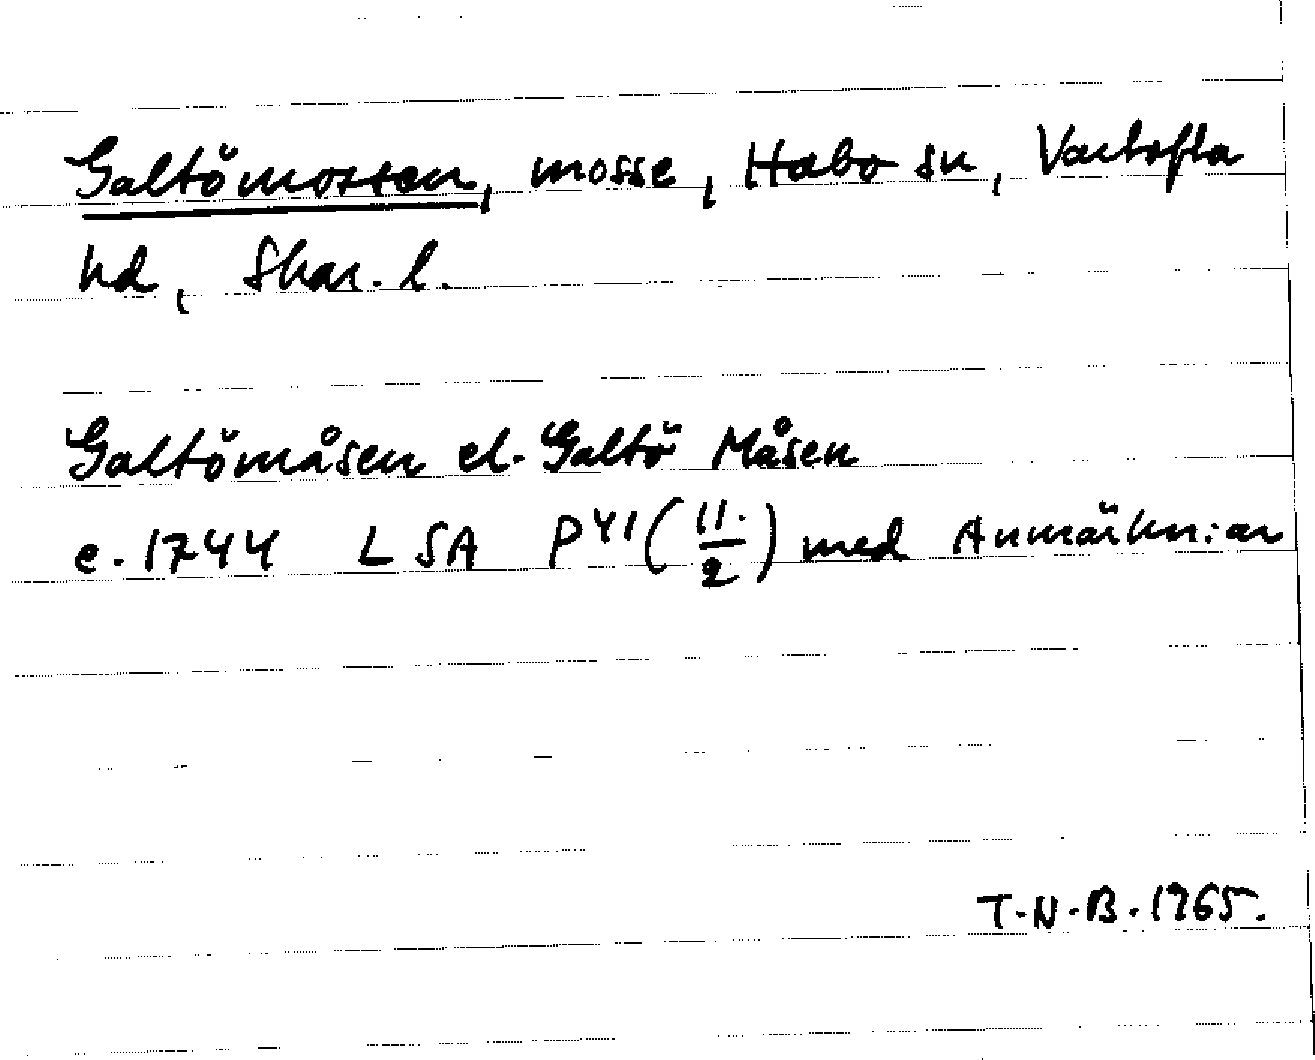 Galtömossen, mosse, Habo sn, Vartofta
hd, Skar. l.
Galtömåsen el. Galtö Måsen
c. 1744 LSA P41 (11./2) med Anmärkn:ar
T.N.B. 1965.